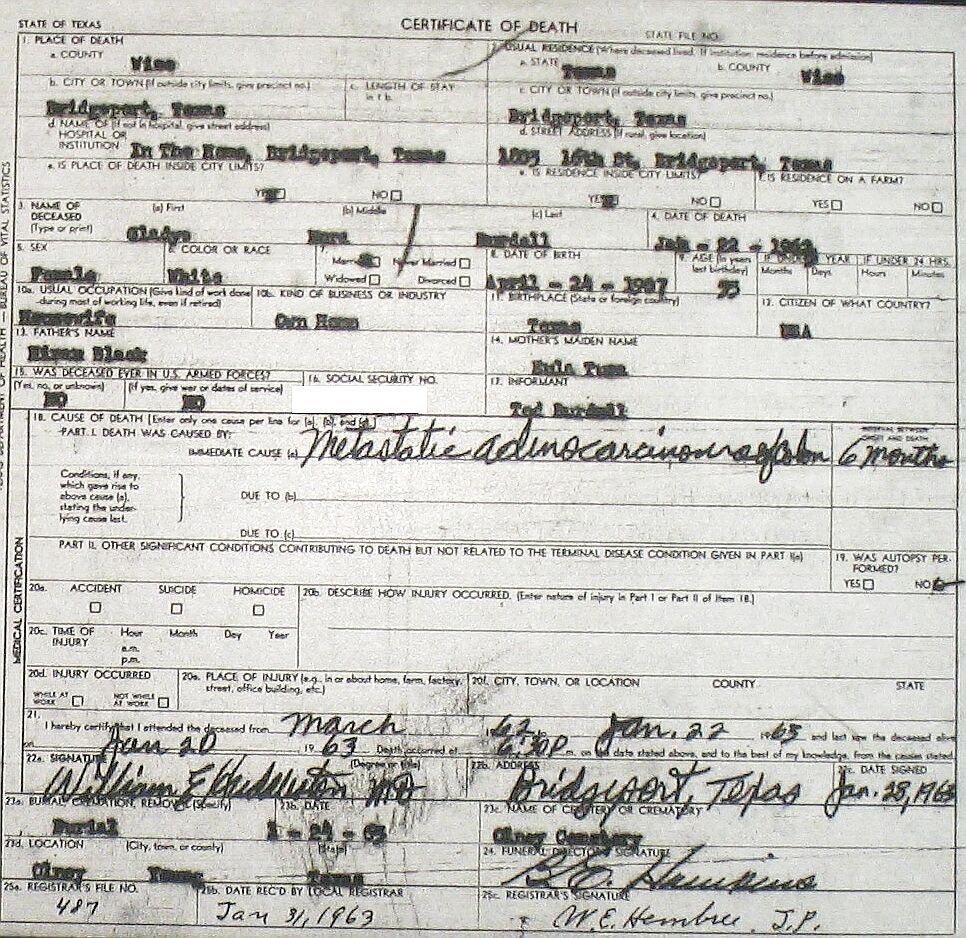 STATE OF TEXAS
CERTIFICATE OF DEATH
STATE FILE NO.
1. PLACE OF DEATH
a. COUNTY
Wise
2. USUAL RESIDENCE (Where deceased lived. If institution: residence before admission)
a. STATE
Texas
b. COUNTY
Wise
b. CITY OR TOWN (If outside city limits, give precinct no.)
Bridgeport, Texas
c. LENGTH OF STAY
in 1 b.
c. CITY OR TOWN (If outside city limits, give precinct no.)
Bridgeport, Texas
d. NAME OF (If not in hospital, give street address)
HOSPITAL OR
INSTITUTION
In The Home, Bridgeport, Texas
d. STREET ADDRESS (If rural, give location)
16th St, Bridgeport, Texas
e. IS PLACE OF DEATH INSIDE CITY LIMITS?
YES NO
e. IS RESIDENCE INSIDE CITY LIMITS?
YES NO
f. IS RESIDENCE ON A FARM?
YES NO
3. NAME OF
DECEASED
(Type or print)
(a) First
Gladys
(b) Middle
(c) Last
Burdell
4. DATE OF DEATH
Jan - 22 - 1963
5. SEX
Female
6. COLOR OR RACE
White
7.
Married Never Married
Widowed Divorced
8. DATE OF BIRTH
April - 24 - 1907
9. AGE (In years
last birthday)
55
IF UNDER 1 YEAR
Months Days
IF UNDER 24 HRS.
Hours Minutes
10a. USUAL OCCUPATION (Give kind of work done
during most of working life, even if retired)
Housewife
10b. KIND OF BUSINESS OR INDUSTRY
Own Home
11. BIRTHPLACE (State or foreign country)
Texas
12. CITIZEN OF WHAT COUNTRY?
USA
13. FATHER'S NAME
Hiram Black
14. MOTHER'S MAIDEN NAME
Eula
15. WAS DECEASED EVER IN U.S. ARMED FORCES?
(Yes, no, or unknown)
NO
(If yes, give war or dates of service)
NO
16. SOCIAL SECURITY NO.
17. INFORMANT
Ted Burdell
18. CAUSE OF DEATH [Enter only one cause per line for (a), (b), and (c).]
PART I. DEATH WAS CAUSED BY:
IMMEDIATE CAUSE (a) Metastatic adinocarcinoma of colon
INTERVAL BETWEEN
ONSET AND DEATH
6 months
Conditions, if any,
which gave rise to
above cause (a),
stating the under-
lying cause last.
DUE TO (b)
DUE TO (c)
PART II. OTHER SIGNIFICANT CONDITIONS CONTRIBUTING TO DEATH BUT NOT RELATED TO THE TERMINAL DISEASE CONDITION GIVEN IN PART I(a)
19. WAS AUTOPSY PER-
FORMED?
YES NO
20a. ACCIDENT SUICIDE HOMICIDE
20b. DESCRIBE HOW INJURY OCCURRED. (Enter nature of injury in Part I or Part II of Item 18.)
20c. TIME OF
INJURY
Hour Month Day Year
a.m.
p.m.
20d. INJURY OCCURRED
WHILE AT
WORK
NOT WHILE
AT WORK
20e. PLACE OF INJURY (e.g., in or about home, farm, factory,
street, office building, etc.)
20f. CITY, TOWN, OR LOCATION COUNTY STATE
21.
I hereby certify that I attended the deceased from March 1962 to Jan. 22 1963 and last saw the deceased alive
on Jan 20 1963 Death occurred at 6:30P m. on the date stated above, and to the best of my knowledge, from the causes stated.
22a. SIGNATURE
(Degree or title)
William E Huddleston MD
22b. ADDRESS
Bridgeport, Texas
22c. DATE SIGNED
Jan. 28, 1963
23a. BURIAL, CREMATION, REMOVAL (Specify)
Burial
23b. DATE
1 - 24 - 63
23c. NAME OF CEMETERY OR CREMATORY
Olney Cemetery
23d. LOCATION (City, town, or county) (State)
Olney Texas
24. FUNERAL DIRECTOR'S SIGNATURE
B.C. Hawkins
25a. REGISTRAR'S FILE NO.
487
25b. DATE REC'D BY LOCAL REGISTRAR
Jan 31, 1963
25c. REGISTRAR'S SIGNATURE
W.E. Hembree J.P.
MEDICAL CERTIFICATION
DEPARTMENT OF HEALTH — BUREAU OF VITAL STATISTICS